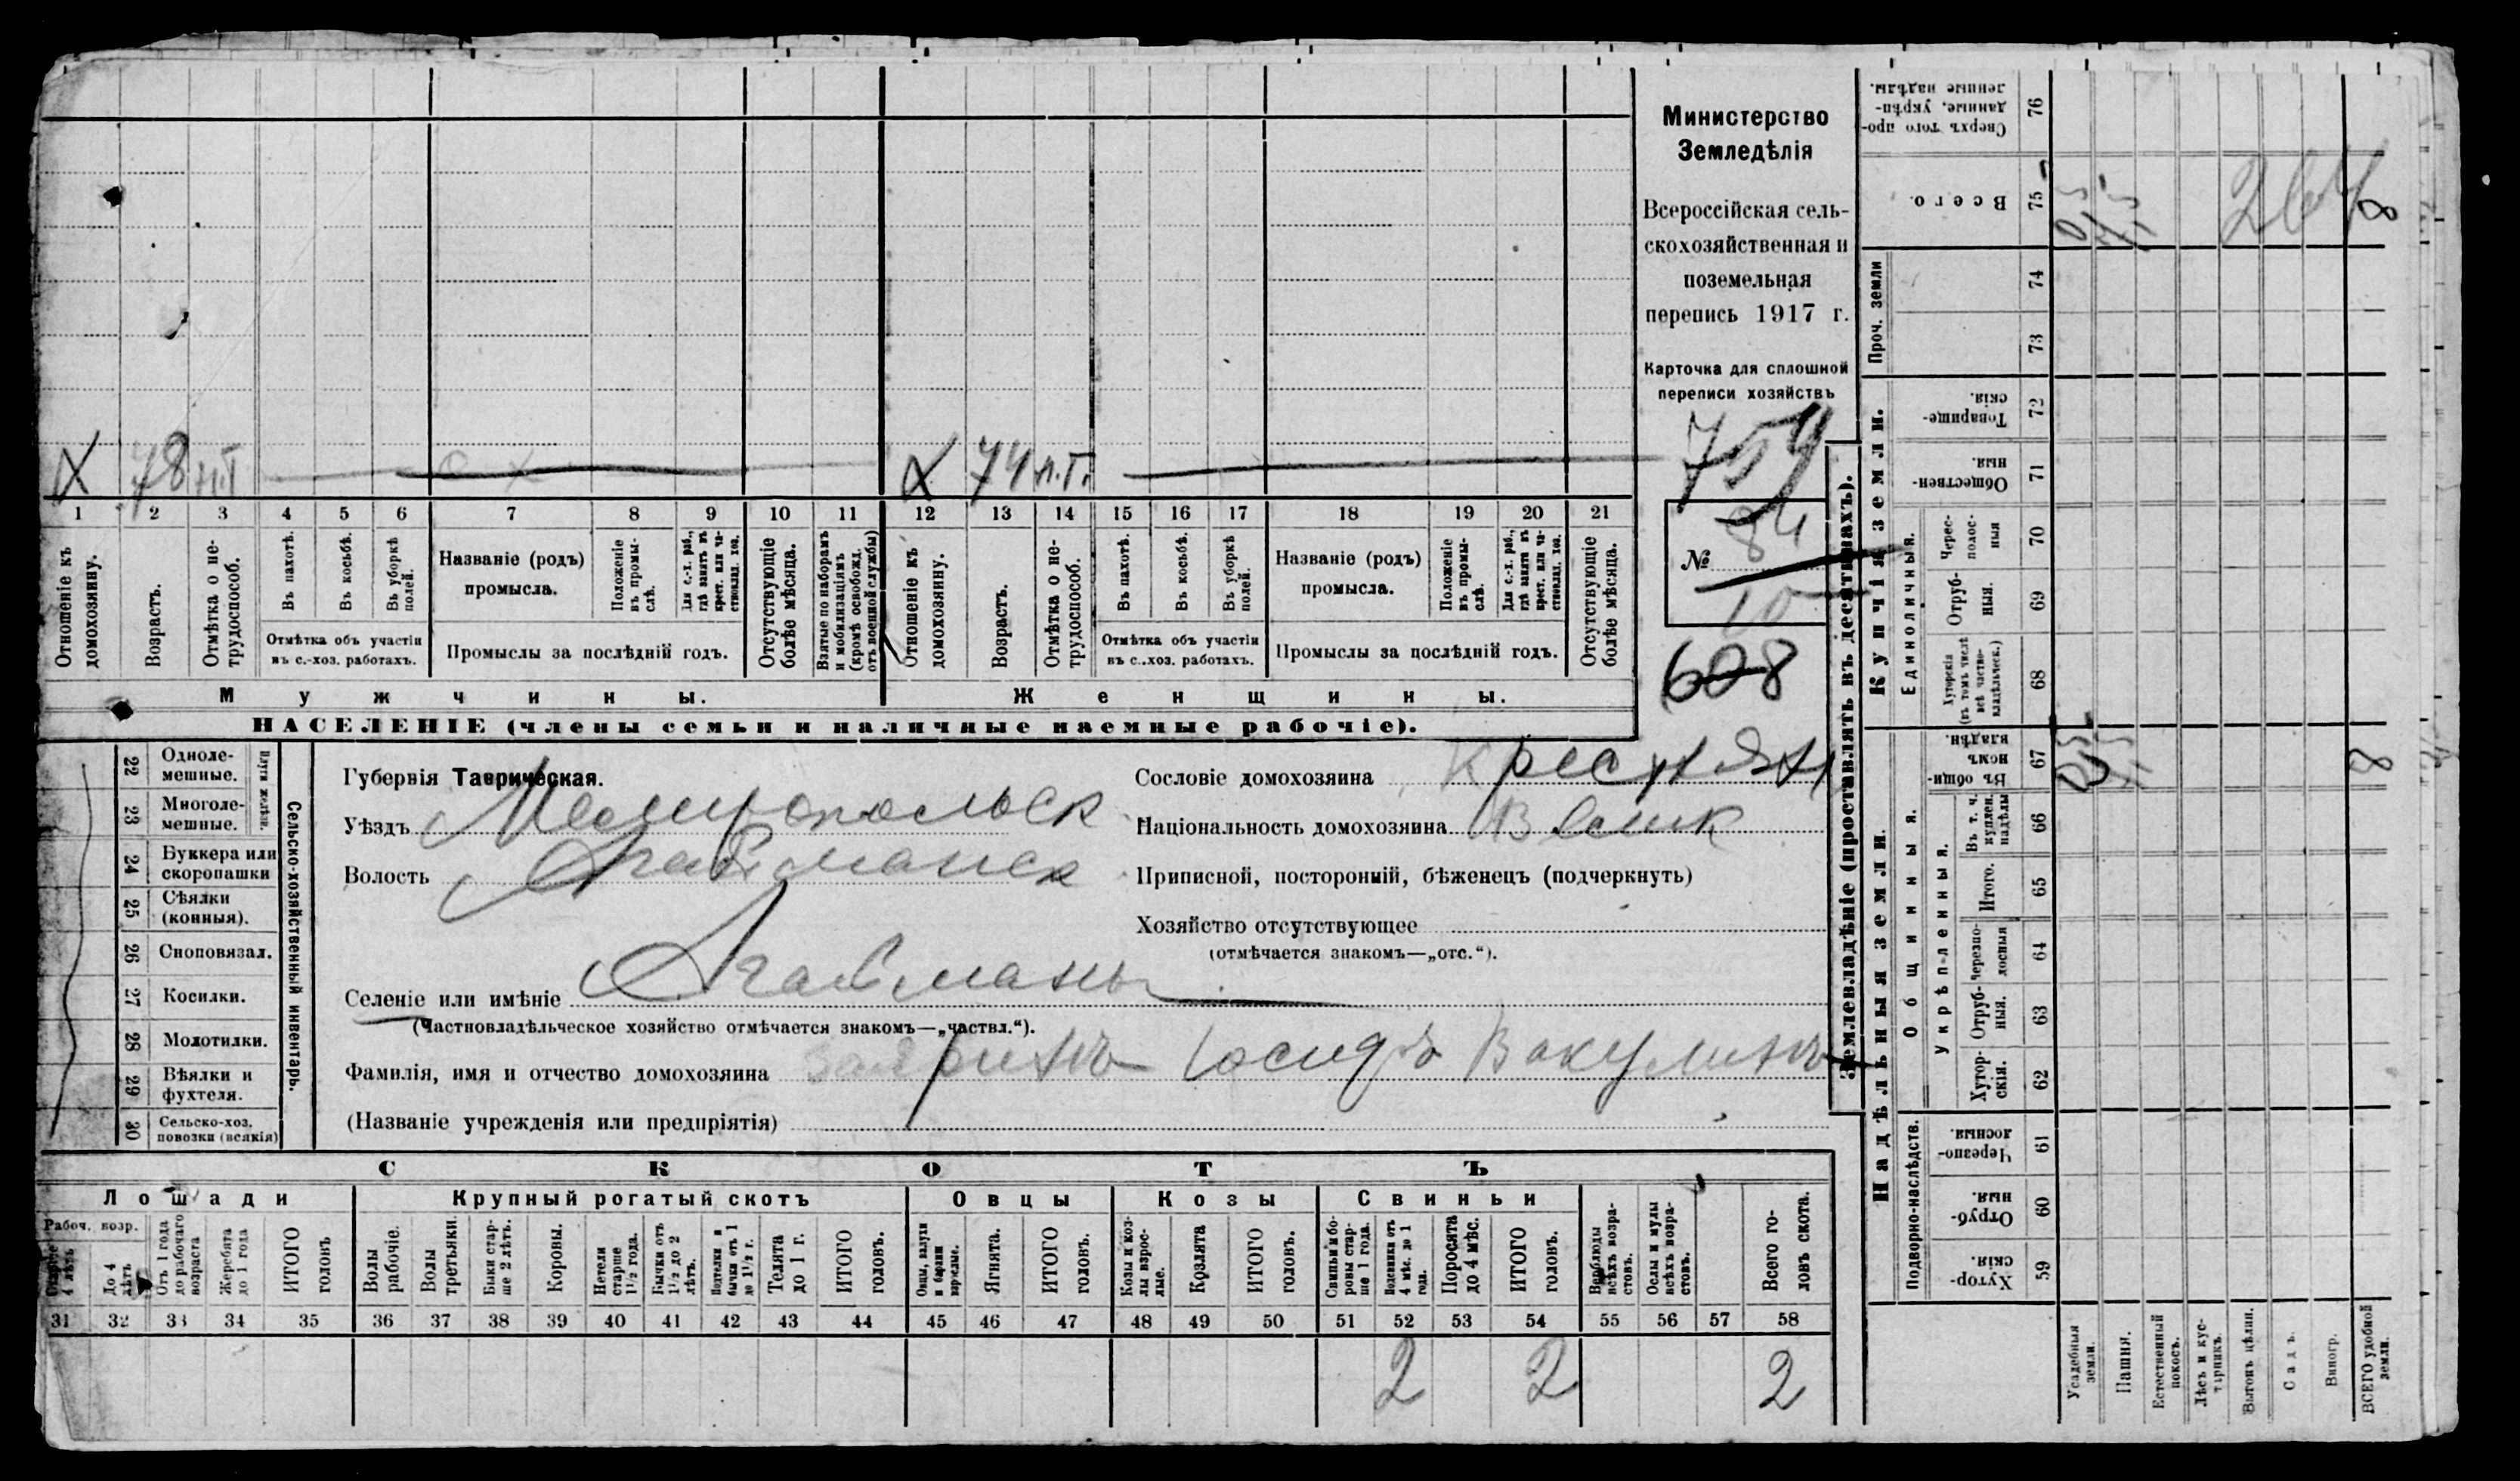 Министерство
Земледѣлія
Всероссійская сель-
скохозяйственная и
поземельная
перепись 1917 г.
Карточка для сплошной
переписи хозяйствъ
759
№ 84
10
608
X 78 н.т. X 74 н.т.
1 2 3 4 5 6 7 8 9 10 11 12 13 14 15 16 17 18 19 20 21
Отношеніе къ домохозяину.
Возрастъ.
Отмѣтка о не-трудоспособ.
Въ пахотѣ.
Въ косьбѣ.
Въ уборкѣ полей.
Отмѣтка объ участіи въ с.-хоз. работахъ.
Названіе (родъ) промысла.
Положеніе въ промы-слѣ.
Для с.-х. раб., гдѣ занятъ въ крест. или ча-стновлад. хоз.
Промыслы за послѣдній годъ.
Отсутствующіе болѣе мѣсяца.
Взятые по наборамъ и мобилизаціямъ (кромѣ освобожд. отъ военной службы)
Отношеніе къ домохозяину.
Возрастъ.
Отмѣтка о не-трудоспособ.
Въ пахотѣ.
Въ косьбѣ.
Въ уборкѣ полей.
Отмѣтка объ участіи въ с.-хоз. работахъ.
Названіе (родъ) промысла.
Положеніе въ промы-слѣ.
Для с.-х. раб., гдѣ занятъ въ крест. или ча-стновлад. хоз.
Промыслы за послѣдній годъ.
Отсутствующіе болѣе мѣсяца.
Мужчины. Женщины.
НАСЕЛЕНІЕ (члены семьи и наличные наемные рабочіе).
22 Одноле-мешные.
23 Многоле-мешные.
Плуги желѣзн.
24 Буккера или скоропашки
25 Сѣялки (конныя).
26 Сноповязал.
27 Косилки.
28 Молотилки.
29 Вѣялки и фухтеля.
30 Сельско-хоз. повозки (всякія)
Сельско-хозяйственный инвентарь.
Губернія Таврическая.
Уѣздъ Мелитопольск
Волость Агайманск
Селеніе или имѣніе Агайманы
(Частновладѣльческое хозяйство отмѣчается знакомъ—„частвл.“).
Фамилія, имя и отчество домохозяина Іосифъ Вакулинъ
(Названіе учрежденія или предпріятія)
Сословіе домохозяина крестьян
Національность домохозяина В елик
Приписной, посторонній, бѣженецъ (подчеркнуть)
Хозяйство отсутствующее
(отмѣчается знакомъ—„отс.“).
СКОТЪ
Лошади Крупный рогатый скотъ Овцы Козы Свиньи
Рабоч. возр.
Старше 4 лѣтъ
До 4 лѣтъ
Отъ 1 года до рабочаго возраста
Жеребята до 1 года
ИТОГО головъ
Волы рабочіе.
Волы третьяки.
Быки стар-ше 2 лѣтъ.
Коровы.
Нетели старше 1½ года.
Бычки отъ 1½ до 2 лѣтъ.
бычки отъ 1 до 1½ г.
Телята до 1 г.
ИТОГО головъ.
Овцы, валухи и бараны взрослые.
Ягнята.
ИТОГО головъ.
Козы и коз-лы взрос-лые.
Козлята
ИТОГО головъ.
Свиньи и бо-ровы стар-ше 1 года.
Подсвинки отъ 4 мѣс. до 1 года.
Поросята до 4 мѣс.
ИТОГО головъ.
Верблюды всѣхъ возра-стовъ.
Ослы и мулы всѣхъ возра-стовъ.
Всего го-ловъ скота.
31 32 33 34 35 36 37 38 39 40 41 42 43 44 45 46 47 48 49 50 51 52 53 54 55 56 57 58
2 2 2
Землевладѣніе (проставлять въ десятинахъ).
Надѣльныя земли.
Купчія земли.
Проч. земли
Подворно-наслѣдств.
Общинныя.
Укрѣпленныя.
Единоличныя.
Хутор-скія. 59
Отруб-ныя. 60
Черезпо-лосныя. 61
Хутор-скія. 62
Отруб-ныя. 63
Черезпо-лосныя 64
Итого. 65
Въ т. ч. куплен. надѣлы 66
Въ общин-номъ владѣн. 67
Хуторскія (въ томъ числѣ всѣ частно-владѣльческ.) 68
Отруб-ныя. 69
Черес-полос-ныя 70
Обществен-ныя. 71
Товарище-скія. 72
73
74
Всего. 75
Сверхъ того про-данные, укрѣп-ленные надѣлы. 76
Усадебныя земли.
Пашня.
Естественный покосъ.
Лѣсъ и кус-тарникъ.
Выгонъ цѣлин.
Садъ.
Виногр.
ВСЕГО удобной земли.
8
8